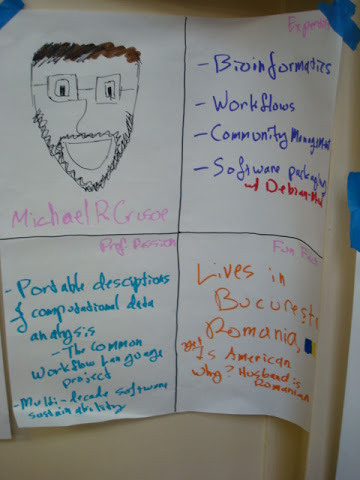 Michael R Crusoe
Expertise
- Bioinformatics
- Workflows
- Community Management
- Software packaging
w/ Debian-Med
Prof. Passion
- Portable descriptions
of computational data
analysis
- The Common
Workflow Language
project
- Multi-decade software
sustainability
Fun Fact
Lives in
București
Romania,
yet Is American
Why? Husband is
Romanian